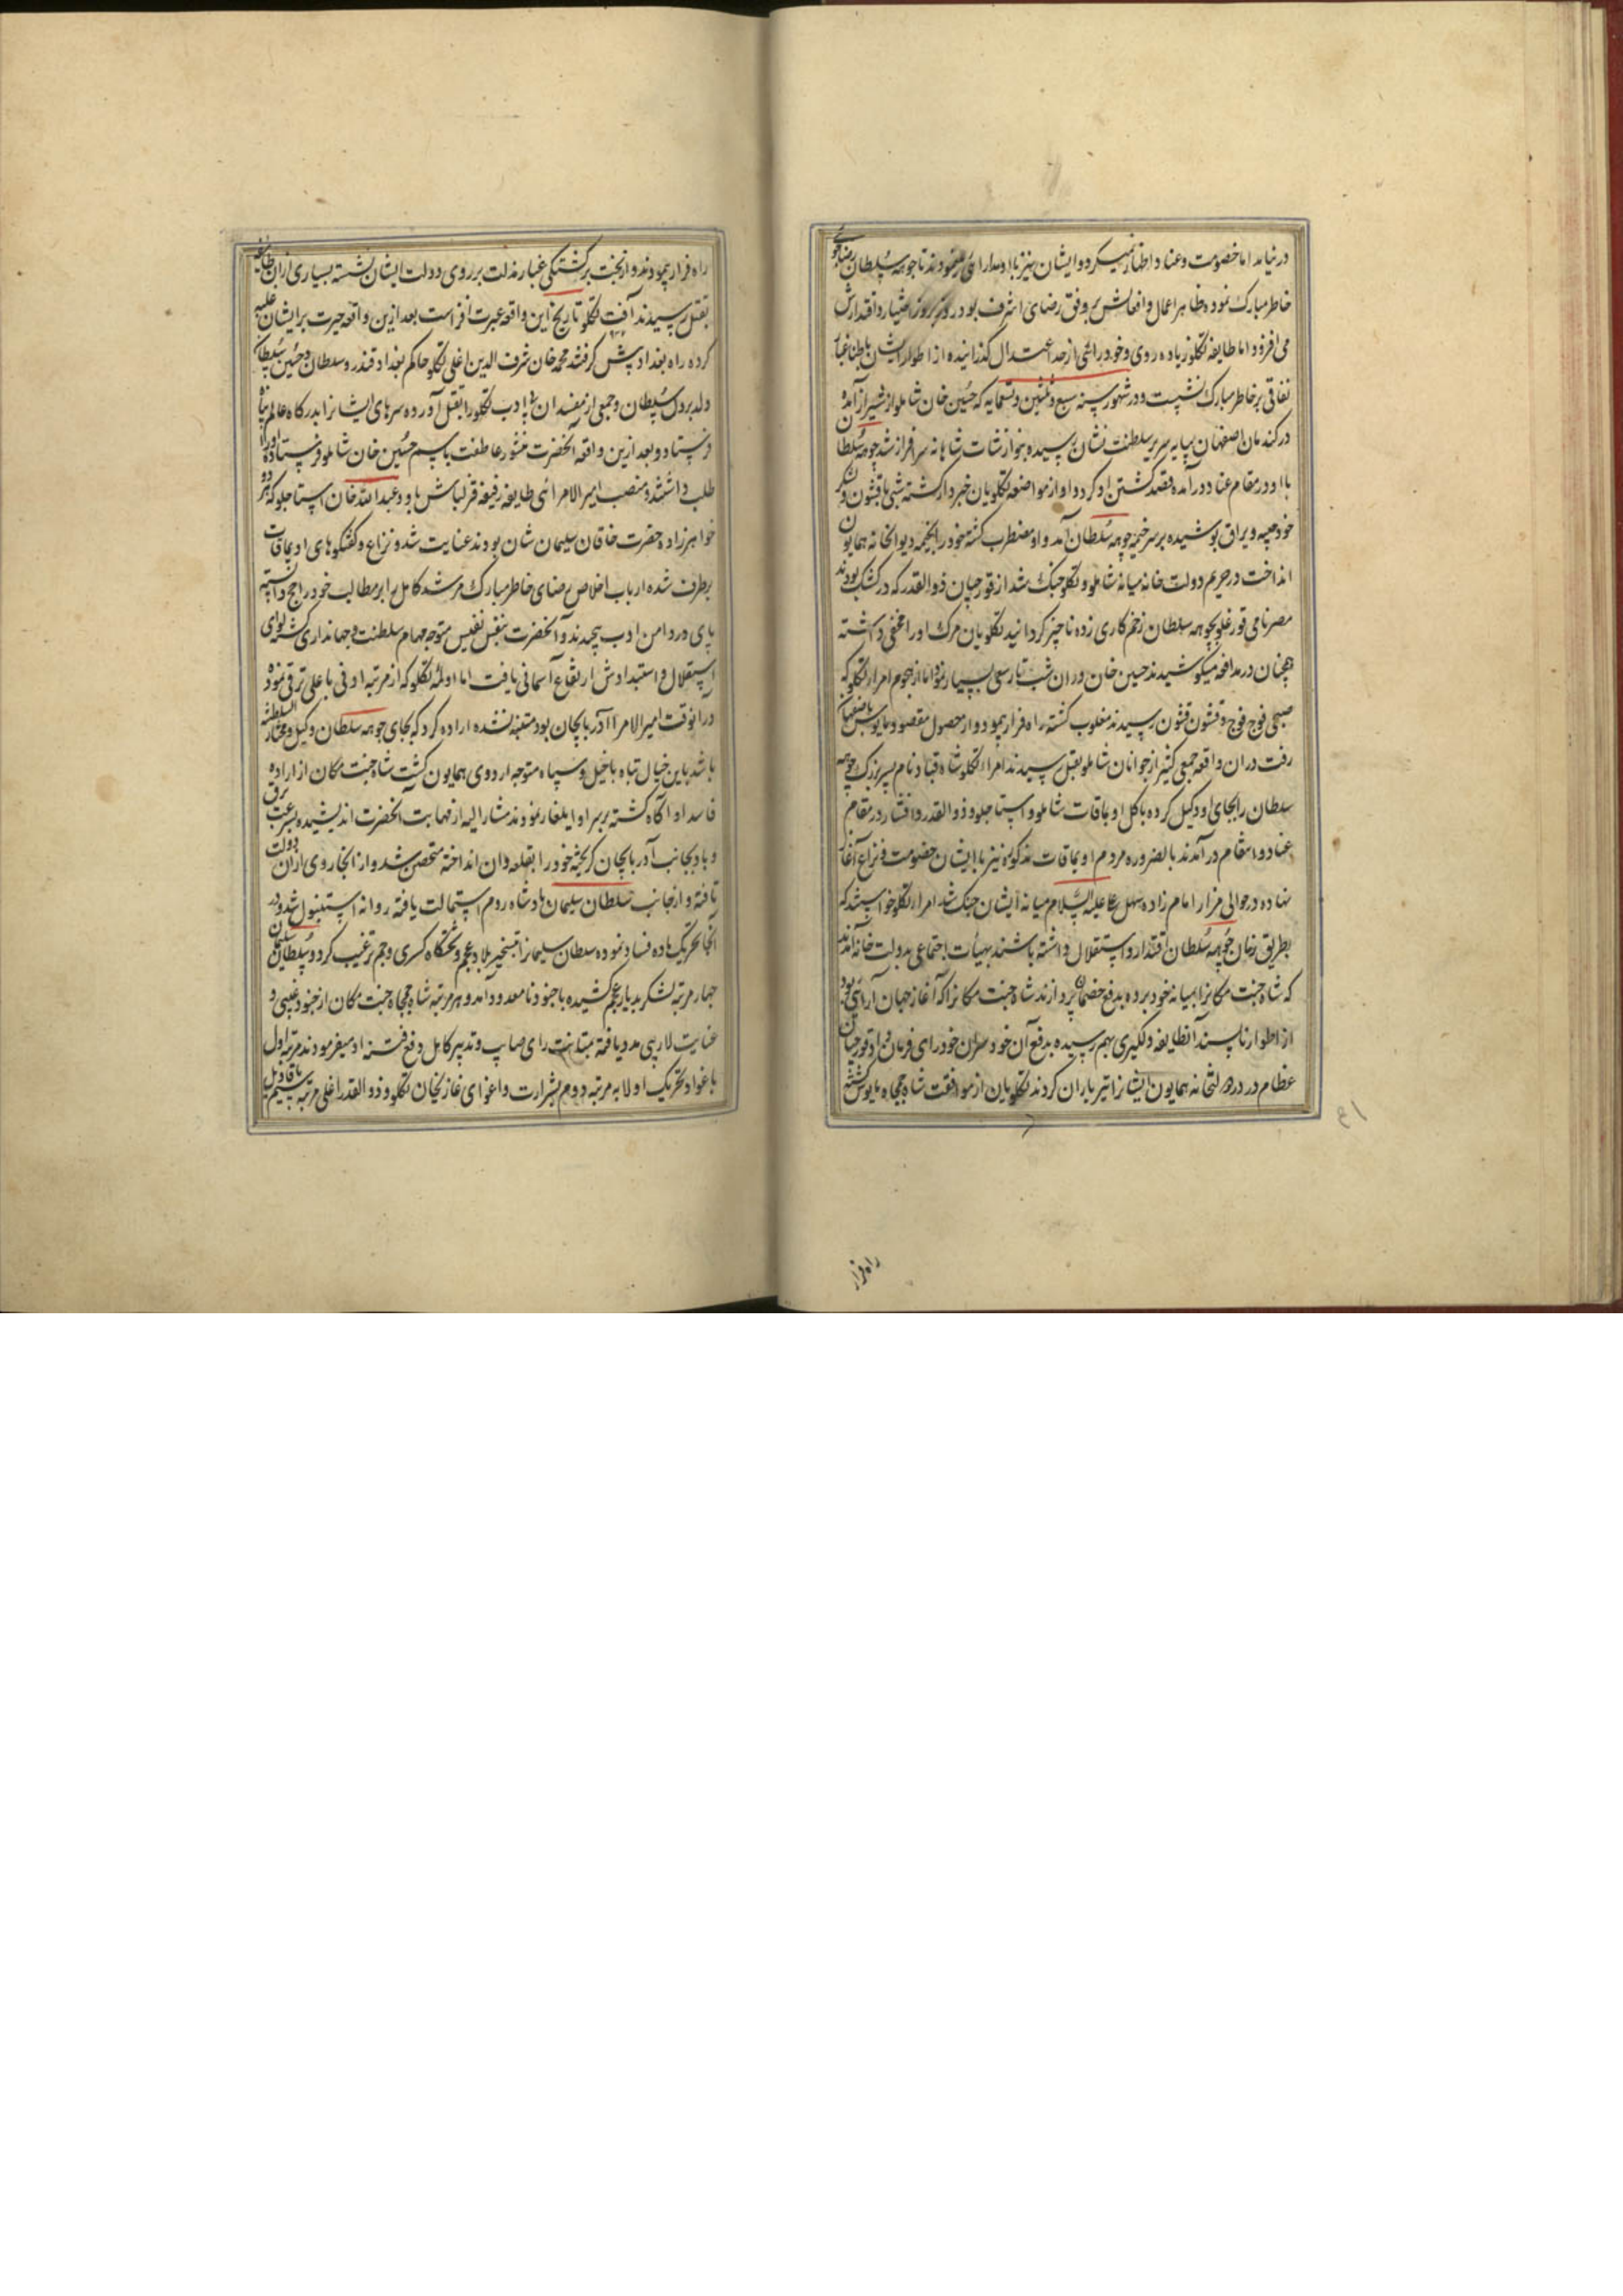 در نیامد اما خصومت و عناد اظهار نمیکرد و ایشان نیز با او مدارائی مینمودند تا چوهه سلطان رضاجوئی
خاطر مبارک نموده بظاهر اعمال و افعالش بر وفق رضای اشرف بود روز بروز اعتبار و اقتدارش
می افزود اما طایفه تکلو زیاده روی و خود رائی از حد اعتدال گذرانیده از اطوار ایشان باطنا غبار
نفاقی بر خاطر مبارک نشست و در شهور سنه سبع و ثلثین و تسعمایه که حسین خان شاملو از شیراز آمده
در کندمان اصفهان بپایه سریر سلطنت نشان رسیده بنوازشات شاهانه سرافراز شد چوهه سلطان
با او در مقام عناد در آمده قصد کشتن او کرد و او از مواضعه تکلویان خبردار گشته شبی با قشون و لشکر
خود جیبه و یراق پوشیده بر سر خیمه چوهه سلطان آمد و او مضطرب گشته خود را بخیمه دیوانخانه همایون
انداخت در حریم دولت خانه میانه شاملو و تکلو جنک شد از قورچیان ذوالقدر که در کشک بودند
مصر نامی قورغلو بچوهه سلطان زخم کاری زده ناچیز کردانید تکلویان مرک او را مخفی داشته
همچنان در مدافعه میکوشیدند حسین خان در ان شب تا سعی بسیار نمود اما از هجوم امراء تکلو که
صبحی فوج فوج و قشون قشون رسیدند مغلوب گشته راه فرار پیمود و از حصول مقصود مایوس باصفهان
رفت در ان واقعه جمعی کثیر از جوانان شاملو بقتل رسیدند امراء تکلو شاه قباد نام پسر بزرک چوهه
سلطان را بجای او وکیل کرده با کل اویماقات شاملو و استاجلو و ذوالقدر و افشار در مقام
عناد و انتقام در آمدند بالضروره مردم اویماقات مذکوره نیز با ایشان خصومت و نزاع آغاز
نهاده در حوالی مزار امام زاده سهل علی علیه السلام میانه ایشان جنک شد امراء تکلو خواستند که
بطریق زمان چوهه سلطان اقتدار و استقلال داشته باشند بهیات اجتماعی بدولت خانه آمدند
که شاه جنت مکانرا بمیانه خود برده بدفع خصمان پردازند شاه جنت مکانرا که آغاز جهان آرائی بود
از اطوار ناپسند آنطایفه دلگیری بهم رسیده بدفع آن خود سران خود رای فرمان داد قورچیان
عظام در در دولتخانه همایون ایشانرا تیر باران کردند تکلویان از موافقت شاه جمجاه مایوس گشته
راه فرار
راه فرار پیمودند و از بخت برگشتگی غبار مذلت بر روی دولت ایشان نشسته بسیاری از ان طایفه
بقتل رسیدند آفت تکلو تاریخ این واقعه عبرت افزاست بعد ازین واقعه حیرت بر ایشان غلبه
کرده راه بغداد پیش گرفتند محمد خان شرف الدین اغلی تکلو حاکم بغداد قندر و سلطان و حسین سلطان
ولد برون سلطان و جمعی از مفسدان بی ادب تکلو را بقتل آورده سرهای ایشانرا بدرکاه عالم پناه
فرستاد و بعد ازین واقعه آنحضرت منشور عاطفت باسم حسین خان شاملو فرستاده او را
طلب داشتند و منصب امیر الامرائی طایفه رفیعه قزلباش باو و عبدالله خان استاجلو که هر دو
خواهرزاده حضرت خاقان سلیمان شان بودند عنایت شد و نزاع و گفتگوهای اویماقات
برطرف شده ارباب اخلاص رضای خاطر مبارک مرشد کامل را بر مطالب خود راجح دانسته
پای در دامن ادب پیچیدند و آنحضرت بنفس نفیس متوجه مهام سلطنت و جهانداری گشته لوای
استقلال و استبدادش ارتفاع آسمانی یافت اما اولمه تکلو که از مرتبه ادنی باعلی ترقی نموده
در انوقت امیر الامراء آذربایجان بود متنبه نشده اراده کرد که بجای چوهه سلطان وکیل و مختار السلطنه
باشد باین خیال تباه با خیل و سپاه متوجه اردوی همایون گشت شاه جنت مکان از اراده
فاسد او آگاه گشته بر سر او ایلغار نمودند مشار الیه از مهابت آنحضرت اندیشیده بسرعت برق
و باد بجانب آذربایجان گریخته خود را بقلعه وان انداخته متحصن شد و از انجا روی از ان دولت
تافته و از جانب سلطان سلیمان پادشاه روم استمالت یافته روانه استنبول شد و در
آنجا تحریک ماده فساد نموده سلطان سلیمانرا بتسخیر بلاد عجم و تختگاه کسری و جم ترغیب کرد و سلطان سلیمان
چهار مرتبه لشکر بدیار عجم کشیده با جنود نامعدود آمد و هر مرتبه شاه جمجاه جنت مکان از جنود غیبی و
عنایت لاریبی مدد یافته بمتانت رای صایب و تدبیر کامل دفع فتنه او میفرمودند مرتبه اول
باغوا و تحریک اولامه مرتبه دوم بشرارت و اغوای غازیخان تکلو و ذوالقدر اغلی مرتبه سیم